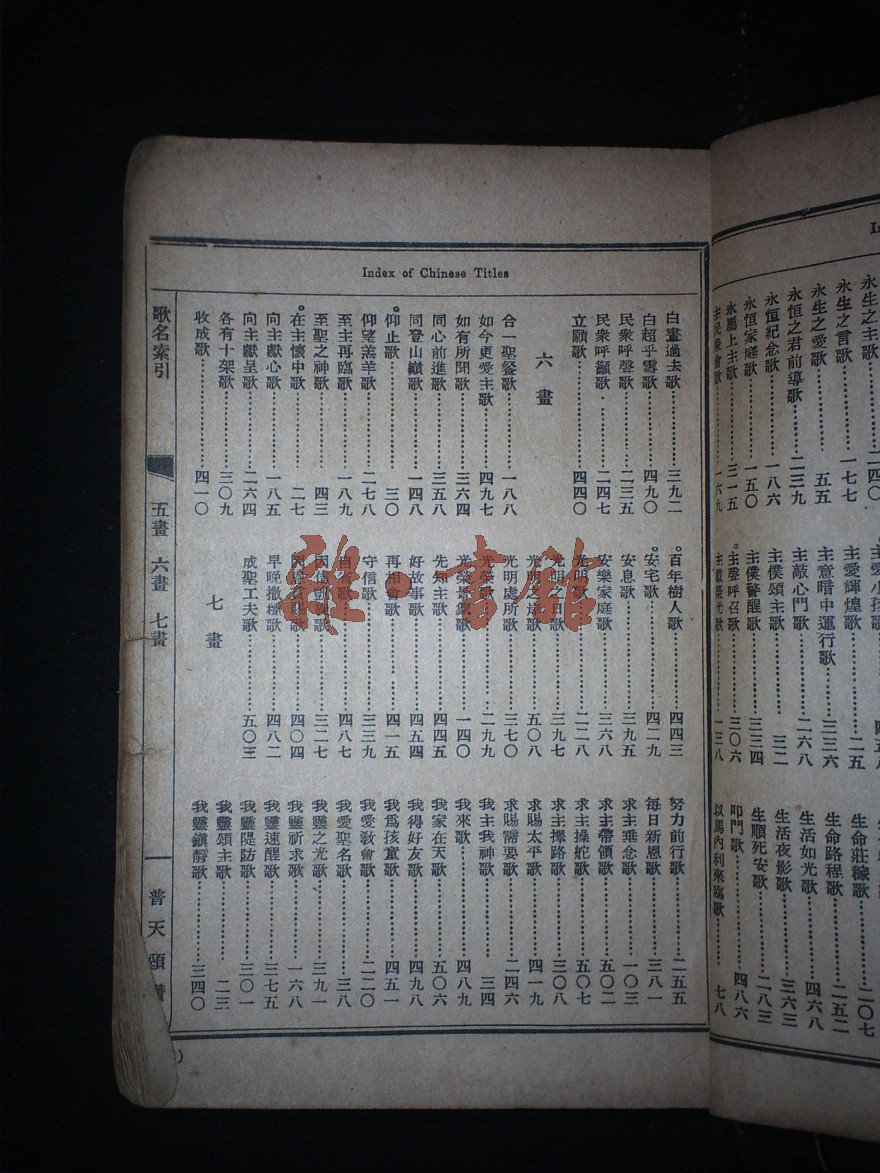 Index of Chinese Titles
永生之主歌……二四〇
永生之言歌……一七七
永生之愛歌……五五
永恒之君前導歌……二三九
永恒紀念歌……一八六
永恒家庭歌……一五〇
永屬上主歌……三一五
主民衆會歌……一六九
主愛小孩歌
主愛輝煌歌……二一五
主意暗中運行歌……三三六
主敵心門歌……二六八
主僕頌主歌……三二
主僕警醒歌……三三四
主聲呼召歌……三〇六
榮光歌……一三八
生命莊稼歌……二〇七
生命路程歌……二五二
生活如光歌……四六八
生活夜影歌……三六三
生順死安歌……二八三
叩門歌……四八六
以馬內利來臨歌……七八
白晝過去歌……三九二
白超乎雪歌……四九〇
民衆呼聲歌……二三五
民衆呼籲歌……二四七
立願歌……四四〇
六畫
合一聖餐歌……一八八
如今更愛主歌……四九七
如有所聞歌……三六四
同心前進歌……三五八
同登山嶺歌……一四八
仰止歌……三〇
仰望羔羊歌……二七八
至主再臨歌……一八九
至聖之神歌……四三
在主懷中歌……二七
向主獻心歌……一八五
向主獻呈歌……二六四
各有十架歌……三〇九
收成歌……四一〇
百年樹人歌……四四三
安宅歌……四二九
安息歌……三九五
安樂家庭歌……三六八
光明歌……二二八
光明之日歌……三九七
光明之歌……五〇八
光明處所歌……三七〇
光榮歌……二九九
光榮景象歌……一四〇
先知主歌……四四五
好故事歌……四五四
再相會歌……四一五
守信歌……三三九
歌……四八七
因信歌……三二七
歌……四〇四
早晚撒種歌……四八二
成聖工夫歌……五〇三
七畫
努力前行歌……二五五
每日新恩歌……三八一
求主垂念歌……一〇三
求主帶領歌……五〇二
求主操舵歌……五〇七
求主擇路歌……三〇八
求賜太平歌……四一九
求賜需要歌……二四六
我主我神歌……三四
我來歌……四八九
我家在天歌……二五六
我得好友歌……四九八
我爲孩童歌……四五一
我愛教會歌……二二〇
我愛聖名歌……三八
我靈之光歌……三九一
我靈祈求歌……一六八
我靈速醒歌……三七五
我靈隄防歌……三〇一
我靈頌主歌……二三
我靈鎮靜歌……三四〇
歌名索引
五畫 六畫 七畫
普天頌讚
雜·書館